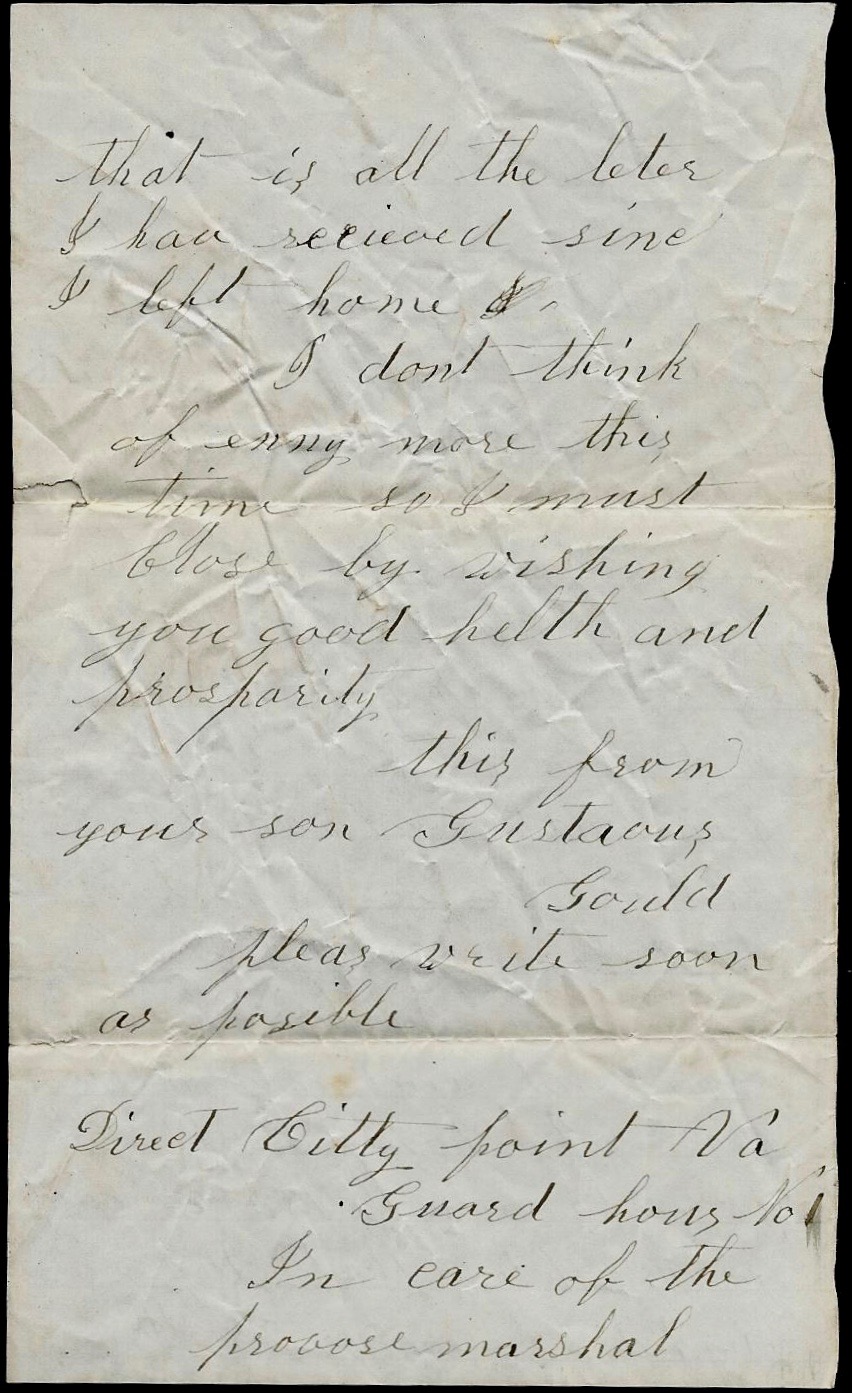 that is all the leter
I hav recieved sinc
I left home
I dont think
of enny more this
time so I must
Close by wishing
you good helth and
prosparity
this from
your son Gustavus
Gould
pleas write soon
as posible
Direct Citty point Va
Guard hous No 1
In care of the
provose marshal